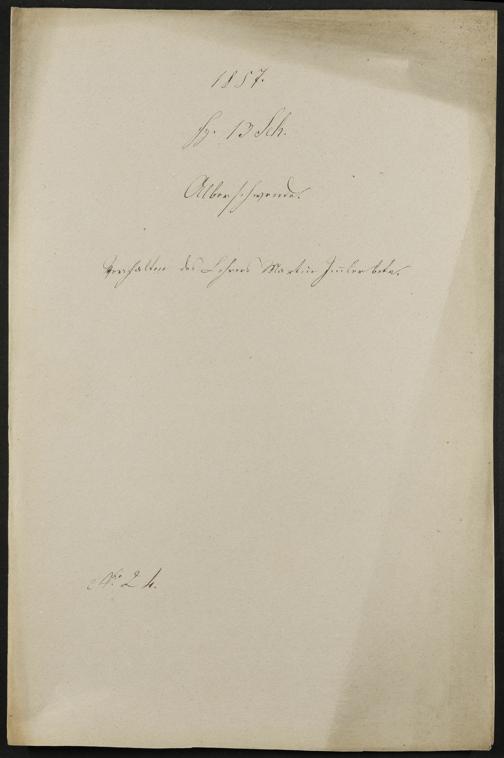 1857.
13 Sch.
Alberschwende.
Verhalten des Lehrers Martin betr.
No 24.